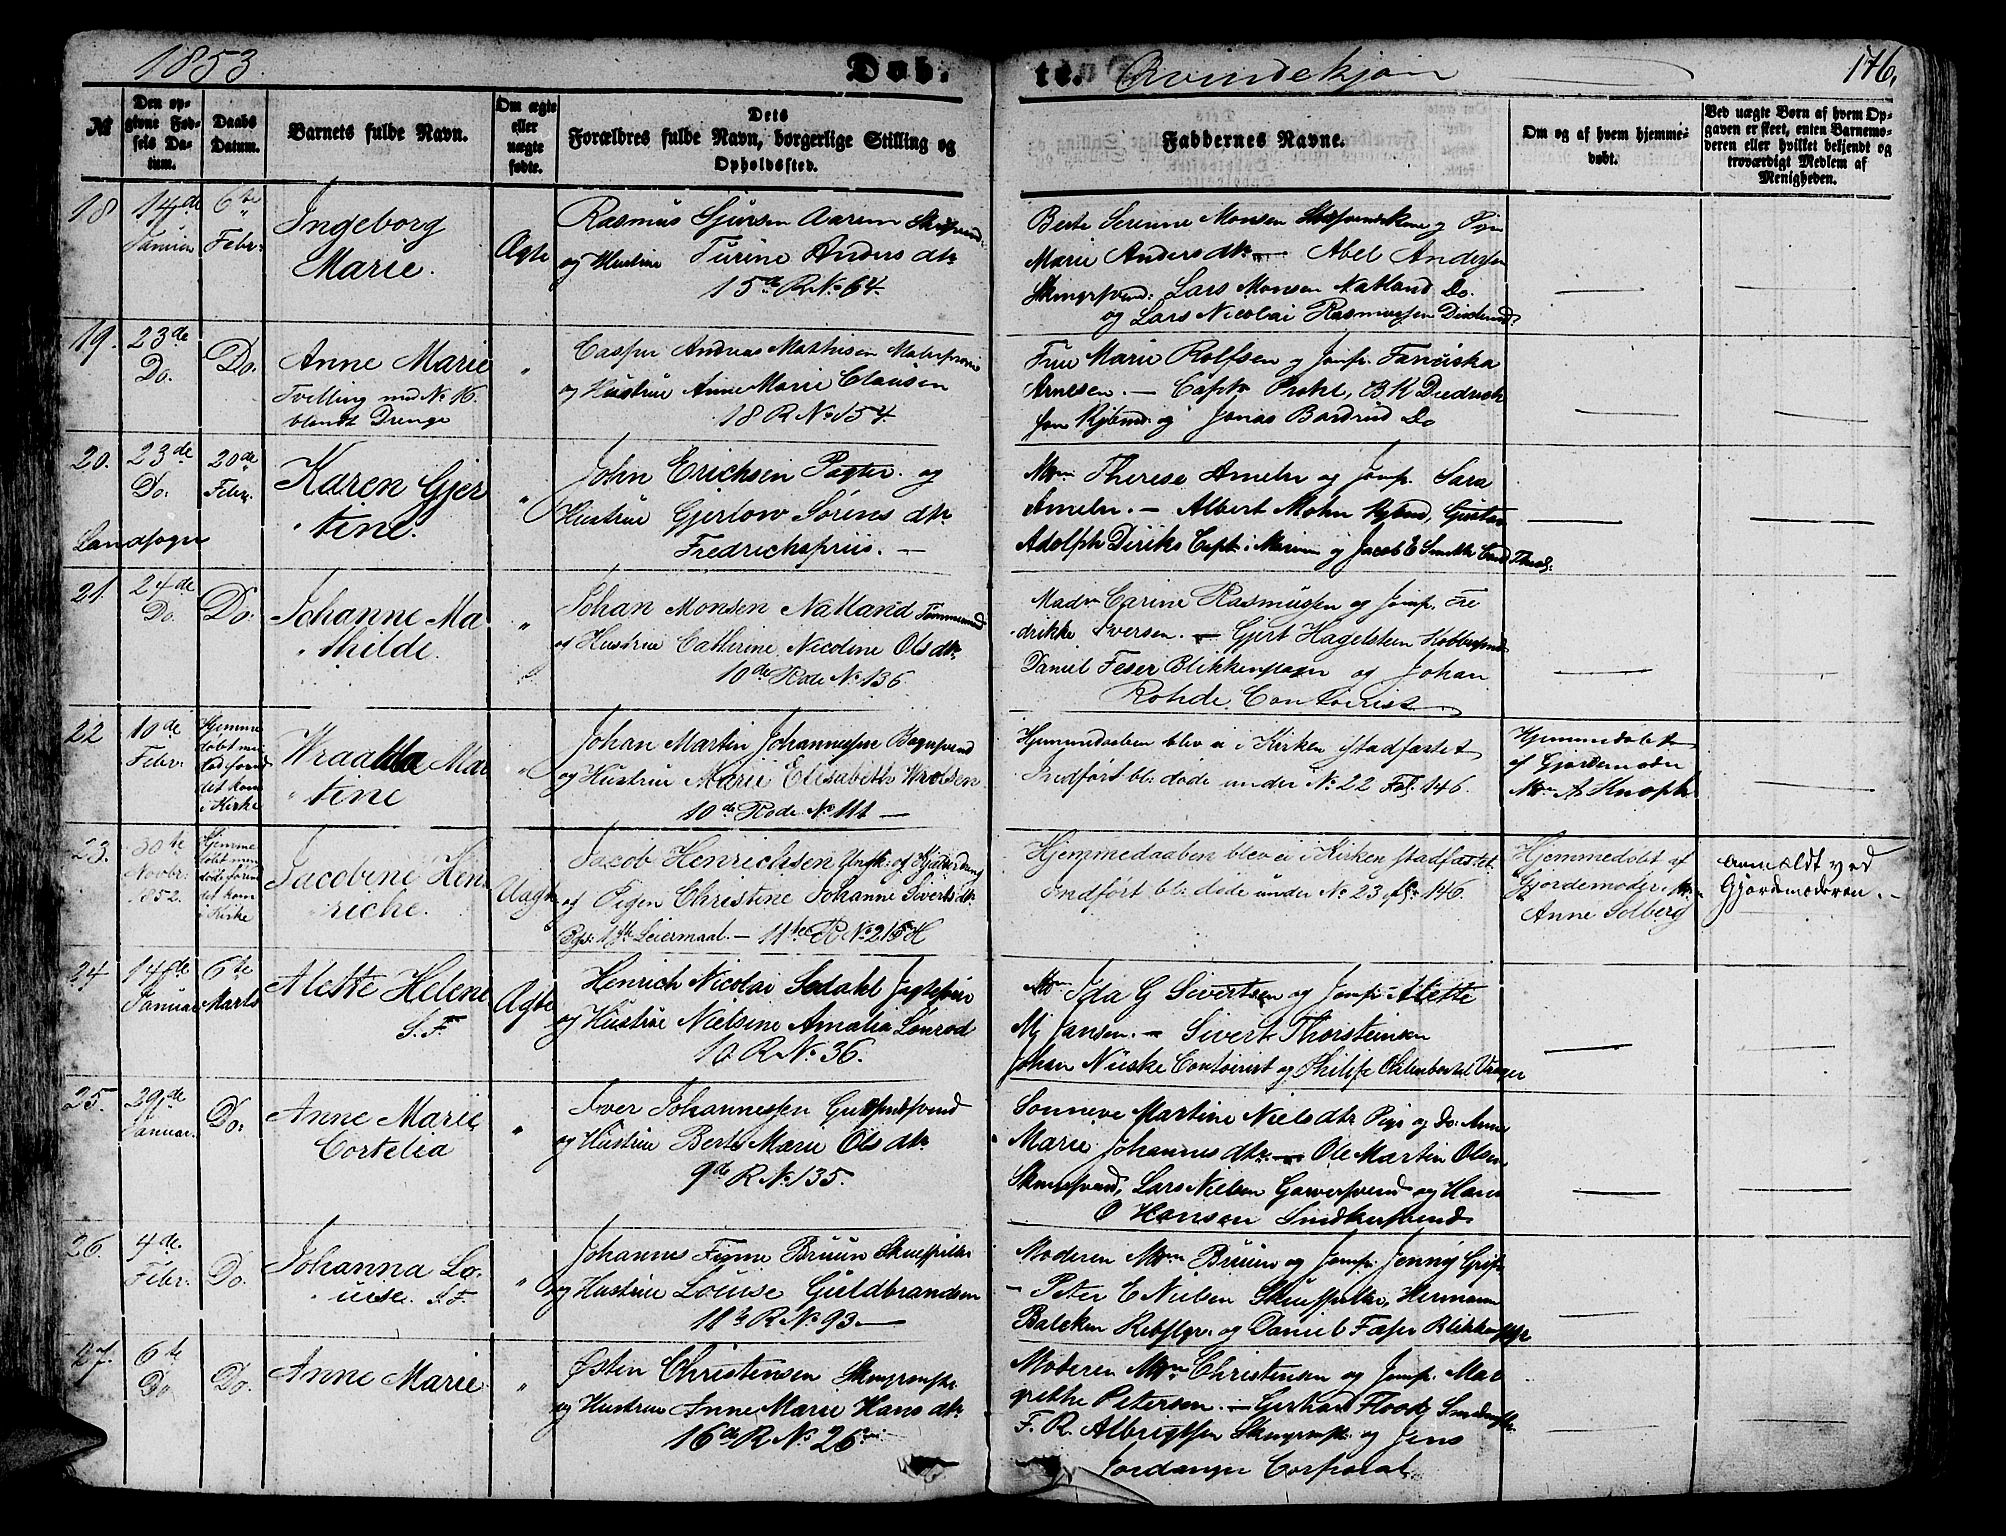 1853.
Døb-
te.
Qvindekjøn
176.
№
Den op-
givne Fød-
sels Da-
tum.
Daabs
Datum.
Barnets fulde Navn.
Om ægte
eller
uægte
fødte.
Dets
Forældres fulde Navn, borgerlige Stilling og
Opholdssted.
Faddernes Navne.
Om og af hvem hjemme-
døbt.
Ved uægte Børn af hvem Op-
gaven er skeet, enten Barnemo-
deren eller hvilket bekjendt og
troværdigt Medlem af
Menigheden.
18
14de
Januar
6te
Febr:
Ingeborg
Marie.
Ægte
Rasmus Sjursen Aarem
og Hustrue Turine Andersdtr
15de R No 64.
Berte Serenne Monsen og Pige
Marie Andersdtr — Abel Andersen
Lars Monsen Natland Do.
og Lars Nicolai Rasmussen
19.
23de
Do.
Do.
Anne Marie
Tvilling med No 16.
blandt Drenge
"
Casper Andreas Mathisen
og Hustrue Anne Marie Clausen
18 R No 154.
Frue Marie Rolfsen og Jomf. Fanciska
Arnesen. — Capt
og Jonas Do
20.
23de
Do.
20de
Febr.
Landsogn
Karen Gjer
tine.
"
John Erichsen Pagter. og
Hustrue Gjertow Sørensdtr
Fredrichspriis. —
Mm Therese Ameln og Jomf. Sara
Ameln. — Albert Mohn Kjbmd, Gustav
Adolph Diriks Capt. i Marinen og Jacob E Smith Cand Theol:
21
24de
Do.
Do.
Johanne Ma
thilde.
"
Johan Monsen Natland Tømmermd
og Hustrue Catherine Nicoline Olsdtr
10de Rode No 136.
Madm Carine Rasmussen og Jomf. Fre
drikke Iversen. — Gjert Hagelsteen
Daniel Feser Blikkenslager og Johan
Rohde Contoirist
22
10de
Febr.
Hjemme
døbt men
død forend
det kom
i Kirke
Wraalda Mar
tine
"
Johan Martin Johannessen Bagersvend
og Hustrue Marie Elisabeth
10de Rode No 111 —
Hjemmedaaben blev ei i Kirken stadfæstet
Indført bl: døde under No 22 Fol. 146.
Hjemmedøbt
af Gjordemoder
Mm A Knoph
23.
30te
Novbr.
1852.
Hjemme
døbt men
døde førend
det kom
i Kirke
Jacobine Hen
riche.
Uægte
Jacob Henrichsen Ungk: af
og Pigen Christine Johanne Sivertsdtr
1ste Leiermaal. — 11te R No 215
Hjemmedaaben blev ei i Kirken stadfæstet
Indført bl: døde under No 23 Fol. 146.
Hjemmedøbt af
Gjordemoder
Anne Solberg
anmeldt ved
Gjordemoderen. —
24
14de
Januar
6te
Marts
Alette Helene
S. F.
Ægte
Henrich Nicolai Sødahl
og Hustrue Nielsine Amalia Lonrod
10 R No 36.
Mm Ida G Sivertsen og Jomf. Alette
Mj Jansen. — Sivert Thorsteinsen
Johan Nüske Contoirist og Philip
25.
29de
Januar.
Do.
Anne Marie
Cortelia
"
Iver Johannessen
og Hustrue Berte Marie Olsdtr
9de R No 135.
Sonneve Martine Nielsdtr Pige og Do. Anne
Marie Johannesdtr. — Ole Martin Olsen
Lars Nielsen Garversvend og Hans
O Hansen Snedkersvend
26.
4de
Febr.
Do.
Johanna Lo-
uise. S. F.
"
Johannes Finne Bruun Skuespiller
og Hustrue Louise Guldbrandsen
R No 93 —
Moderen Mm Bruun og Jomf. Jenny
— Peter E Nielsen Skuespiller, Hermann
og Daniel Fæser
27.
6te
Do
Do.
Anne Marie
"
Østen Christensen
og Hustrue Anne Marie Hansdtr
16de R No 26
Moderen Mm Christensen og Jomf. Mar
grethe Petersen. — Gerhard
F. R. Albrigtsen og Jens
Jordanger Corporal.